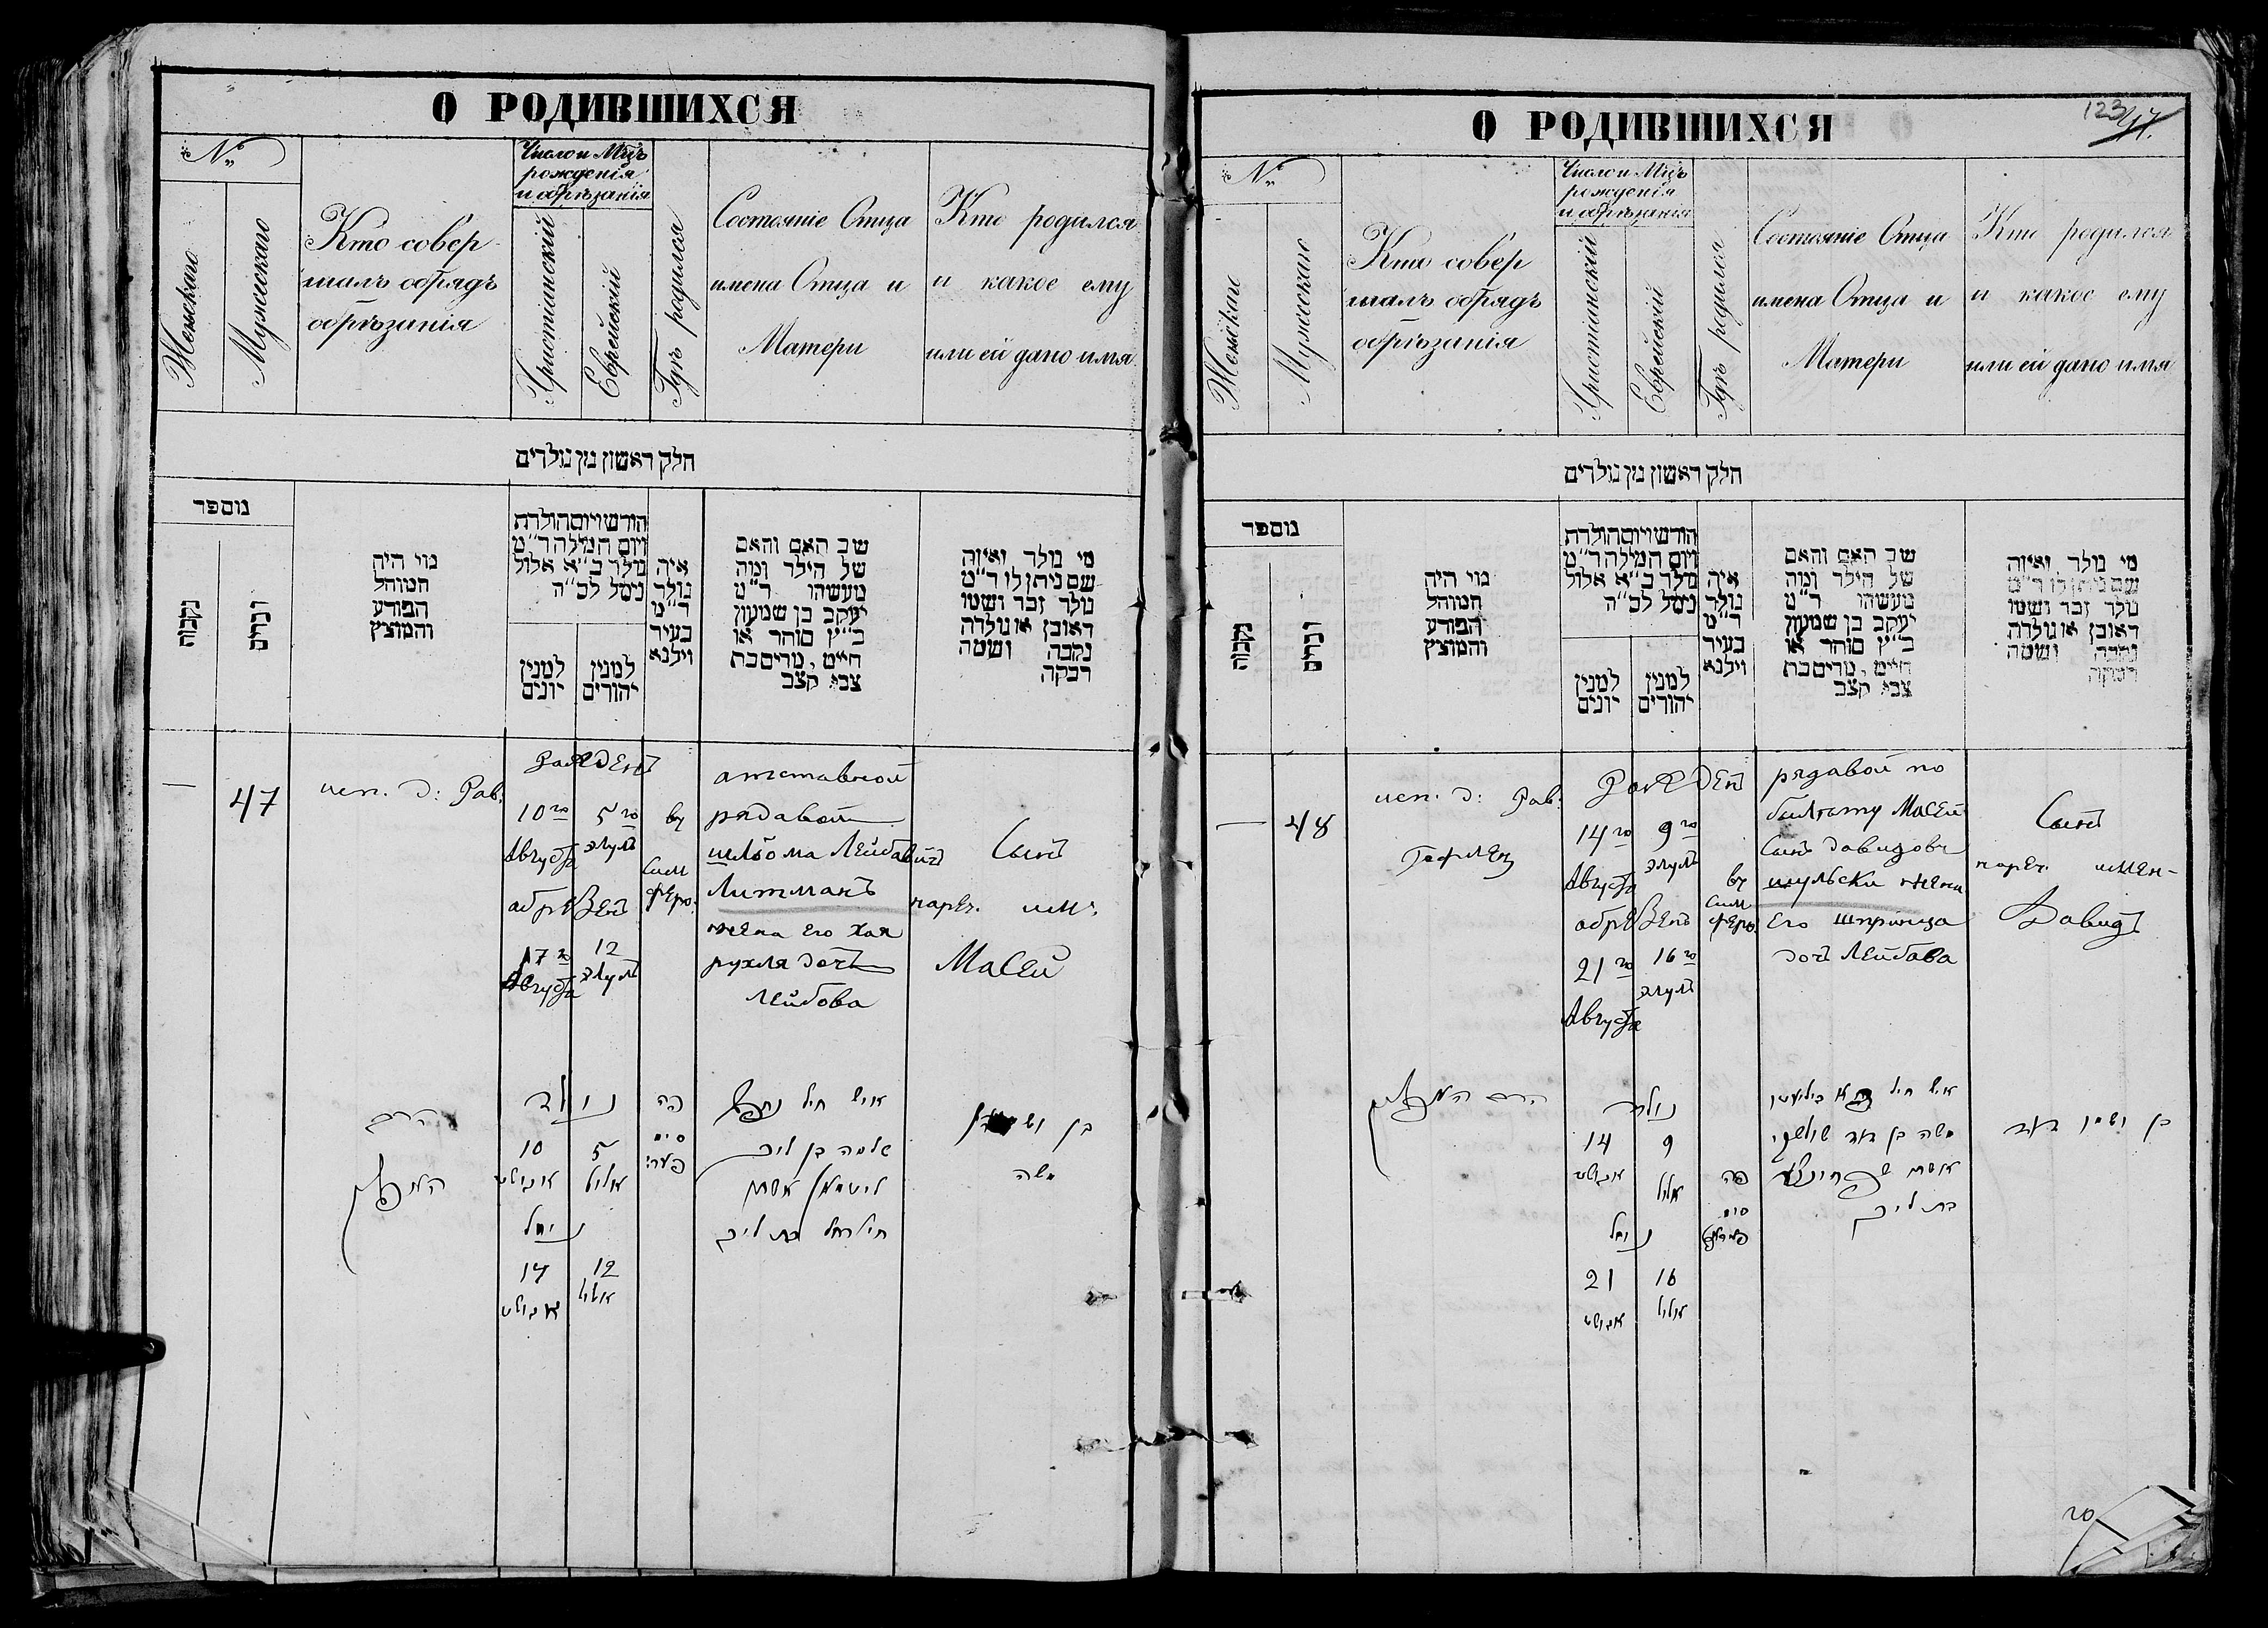 О РОДИВШИХСЯ
№
Женскаго
Мужескаго
Кто совер-
шалъ обрядъ
обрѣзанія
Число и Мѣцъ
рожденія
и обрѣзанія
Христіанскій
Еврейскій
Гдѣ родился
Состояніе Отца
имена Отца и
Матери
Кто родился
и какое ему
или ей дано имя
חלק ראשון מן נולדים
מספר
נקבות
זכרים
מי היה
המוהל
הפורע
והמוצץ
חודש ויום הולדת
ויום המילה ר״מ
נולד ב״א אלול
נימל לכ״ה
למנין
יונים
למנין
יהודים
איה
נולד
ר״מ
בעיר
וילנא
שם האב והאם
של הילד ומה
מעשהו ר״מ
יעקב בן שמעון
כ״ץ סוחר או
חייט, מרים בת
צבי קצב
מי נולד ואיזה
שם ניתן לו ר״מ
נולד זכר ושמו
ראובן או נולדה
נקבה ושמה
רבקה
— 47
исп. д: Рав.
Раждент
10го 5го
Августа элулъ
обрезенъ
17го 12
Августа элулъ
въ
Сим
феро.
атставной
рядавой
шлиома Лейбавичъ
Литманъ
жена его Хая
рухля дочъ
Лейбова
Сынъ
нареч. им.
Масей
נולד
10 5
אויגוסט אלול
נימל
17 12
אויגוסט אלול
פה
סימ
פערי
איש חיל
שלמה בן ליב
ליטמאן אשתו
חי׳ רחל בת ליב
בן ושמו
משה
О РОДИВШИХСЯ
123
№
Женскаго
Мужескаго
Кто совер
шалъ обрядъ
обрѣзанія
Число и Мѣцъ
рожденія
и обрѣзанія
Христіанскій
Еврейскій
Гдѣ родился
Состояніе Отца
имена Отца и
Матери
Кто родился
и какое ему
или ей дано имя
חלק ראשון מן נולדים
מספר
נקבות
זכרים
מי היה
המוהל
הפורע
והמוצץ
חודש ויום הולדת
ויום המילה ר״מ
נולד ב״א אלול
נימל לכ״ה
למנין
יונים
למנין
יהודים
איה
נולד
ר״מ
בעיר
וילנא
שם האב והאם
של הילד ומה
מעשהו ר״מ
יעקב בן שמעון
כ״ץ סוחר או
חייט, מרים בת
צבי קצב
מי נולד ואיזה
שם ניתן לו ר״מ
נולד זכר ושמו
ראובן או נולדה
נקבה ושמה
רבקה
— 48
исп. д: Рав.
Гефлен
Раждент
14го 9го
Августа элулъ
обрезенъ
21го 16го
Августа элулъ
въ
Сим
феро.
рядавой по
билтату Масей
Сынъ давидовъ
шульски жена
его шпринца
дочъ Лейбова
Сынъ
нареч. имен-
Давидъ
נולד
14 9
אויגוסט אלול
נימל
21 16
אויגוסט אלול
פה
סימ
איש חיל
משה בן דוד שולסקי
אשתו שפרינצא
בת ליב
בן ושמו דוד
20